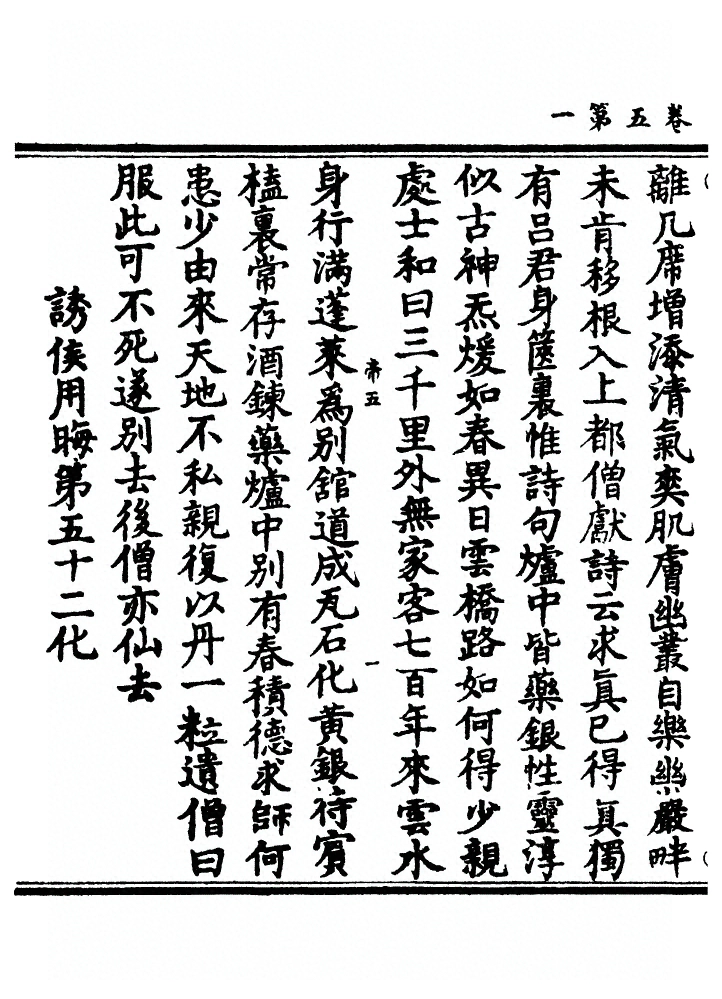 卷五第一
離几席增添清氣爽肌膚幽叢自樂幽巖畔
未肯移根入上都僧獻詩云求眞已得眞獨
有呂君身篋裏惟詩句爐中皆藥銀性靈淳
似古神炁煖如春異日雲橋路如何得少親
處士和曰三千里外無家客七百年來雲水
帝五 一
身行滿蓬萊爲別舘道成瓦石化黃銀待賓
榼裏常存酒鍊藥爐中別有春積德求師何
患少由來天地不私親復以丹一粒遺僧曰
服此可不死遂別去後僧亦仙去
誘侯用晦第五十二化